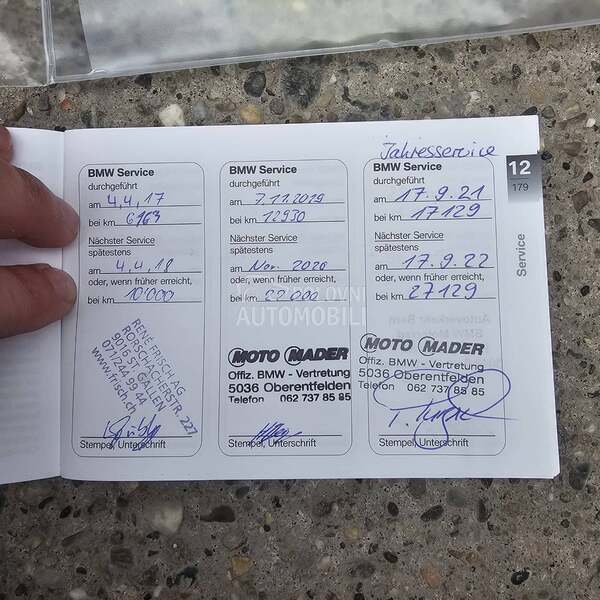 BMW Service
durchgeführt
am 4.4.17
bei km 6163
Nächster Service
spätestens
am 4.4.18
oder, wenn früher erreicht,
bei km 10'000
RENÉ FRISCH AG
RORSCHACHERSTR. 227
9016 ST. GALLEN
071/244 99 44
www.frisch.ch
Stempel, Unterschrift
BMW Service
durchgeführt
am 7.11.2019
bei km 12950
Nächster Service
spätestens
am Nov. 2020
oder, wenn früher erreicht,
bei km 22000
MOTO MADER
Offiz. BMW - Vertretung
5036 Oberentfelden
Telefon 062 737 85 85
Stempel, Unterschrift
Jahresservice
BMW Service
durchgeführt
am 17.9.21
bei km 17129
Nächster Service
spätestens
am 17.9.22
oder, wenn früher erreicht,
bei km 27129
MOTO MADER
Offiz. BMW - Vertretung
5036 Oberentfelden
Telefon 062 737 85 85
Stempel, Unterschrift
12
179
Service
POLOVNI
AUTOMOBILI